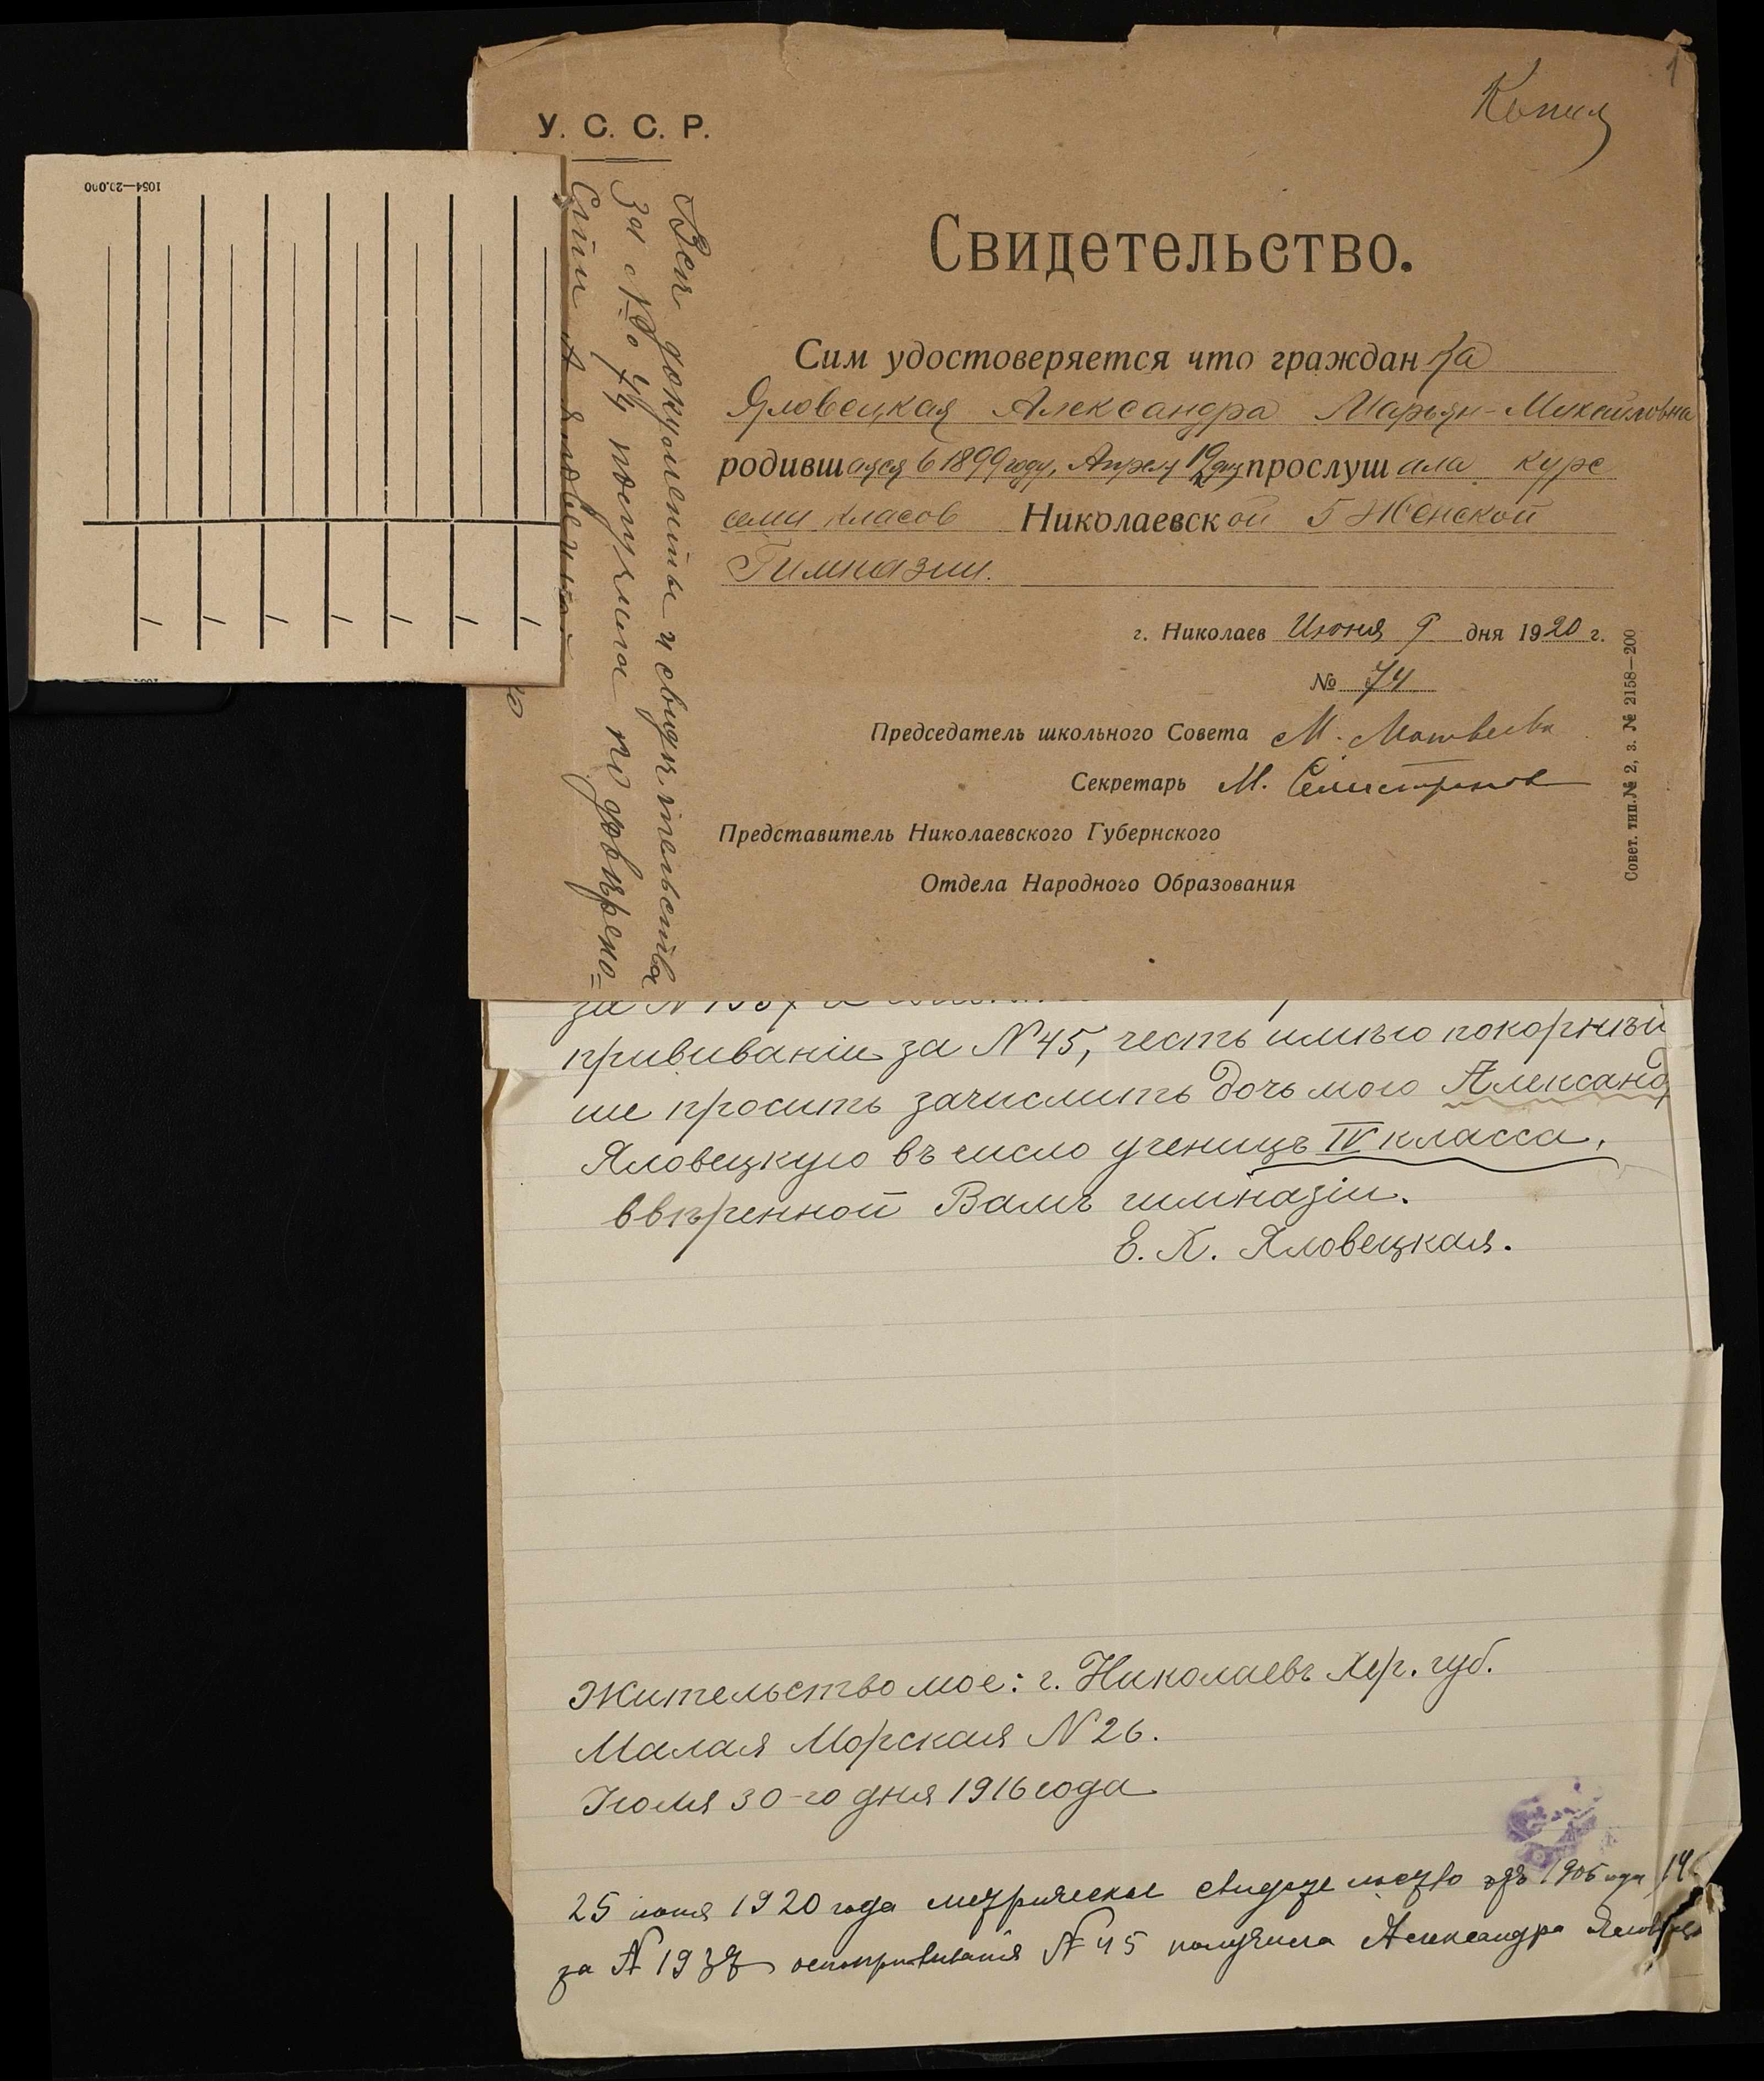 Копия
1
У. С. С. Р.
Свидетельство.
Сим удостоверяется что гражданка
Яловецкая Александра Марьян-Михайловна
родившаяся в 1899 году, Апреля 19 дня прослушала курс
семи класов Николаевской 5 Женской
Гимназии.
г. Николаев Июня 9 дня 1920 г.
№ 74
Председатель школьного Совета М. Матвеева
Секретарь М. Селистранов
Представитель Николаевского Губернского
Отдела Народного Образования
Совет. тип. № 2, з. № 2158—200
Все документы и свидетельства
за №о 74 получила по доверено=
сти А Яловецкой
1054—20.000
за N
прививаніи за N 45, честь имѣю покорнѣй
ше просить зачислить дочь мою Александ
Яловецкую въ число ученицъ IV класса,
ввѣренной Вамъ гимназіи.
Е. К. Яловецкая.
Жительство мое: г. Николаевъ Хер. губ.
Малая Морская N 26.
Июля 30-го дня 1916 года
25 июня 1920 года метрическое свидетельство 1906 года
за N оспопрививания N 45 получила Александра